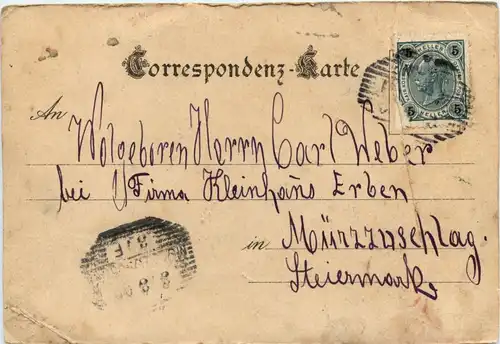 Correspondenz-Karte
5 HELLER 5
5 HELLER 5
An Wolgeboren Herrn Carl Weber
bei Firma Kleinhans Erben
in Mürzzuschlag.
Steiermark.